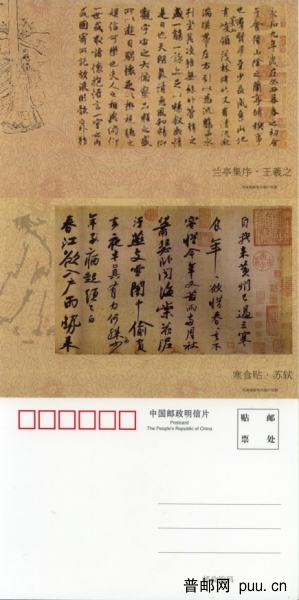 永和九年歲在癸丑暮春之初會
于會稽山陰之蘭亭脩禊事
也羣賢畢至少長咸集此地
有崇山峻領茂林脩竹又有清流激
湍暎帶左右引以為流觴曲水
列坐其次雖無絲竹管弦之
盛一觴一詠亦足以暢敘幽情
是日也天朗氣清惠風和暢仰
觀宇宙之大俯察品類之盛
所以遊目騁懷足以極視聽之
娛信可樂也夫人之相與俯仰
一世或取諸懷抱悟言一室之內
或因寄所託放浪形骸之外雖
兰亭集序·王羲之
自我来黄州已過三寒
食年々欲惜春々去不
容惜今年又苦雨兩月秋
蕭瑟卧聞海棠花泥
汙燕支雪闇中偷負
去夜半真有力何殊少
年子病起頭已白
春江欲入户雨勢来
寒食贴·苏轼
中国邮政明信片
Postcard
The People's Republic of China
贴 邮
票 处
普邮网 puu.cn